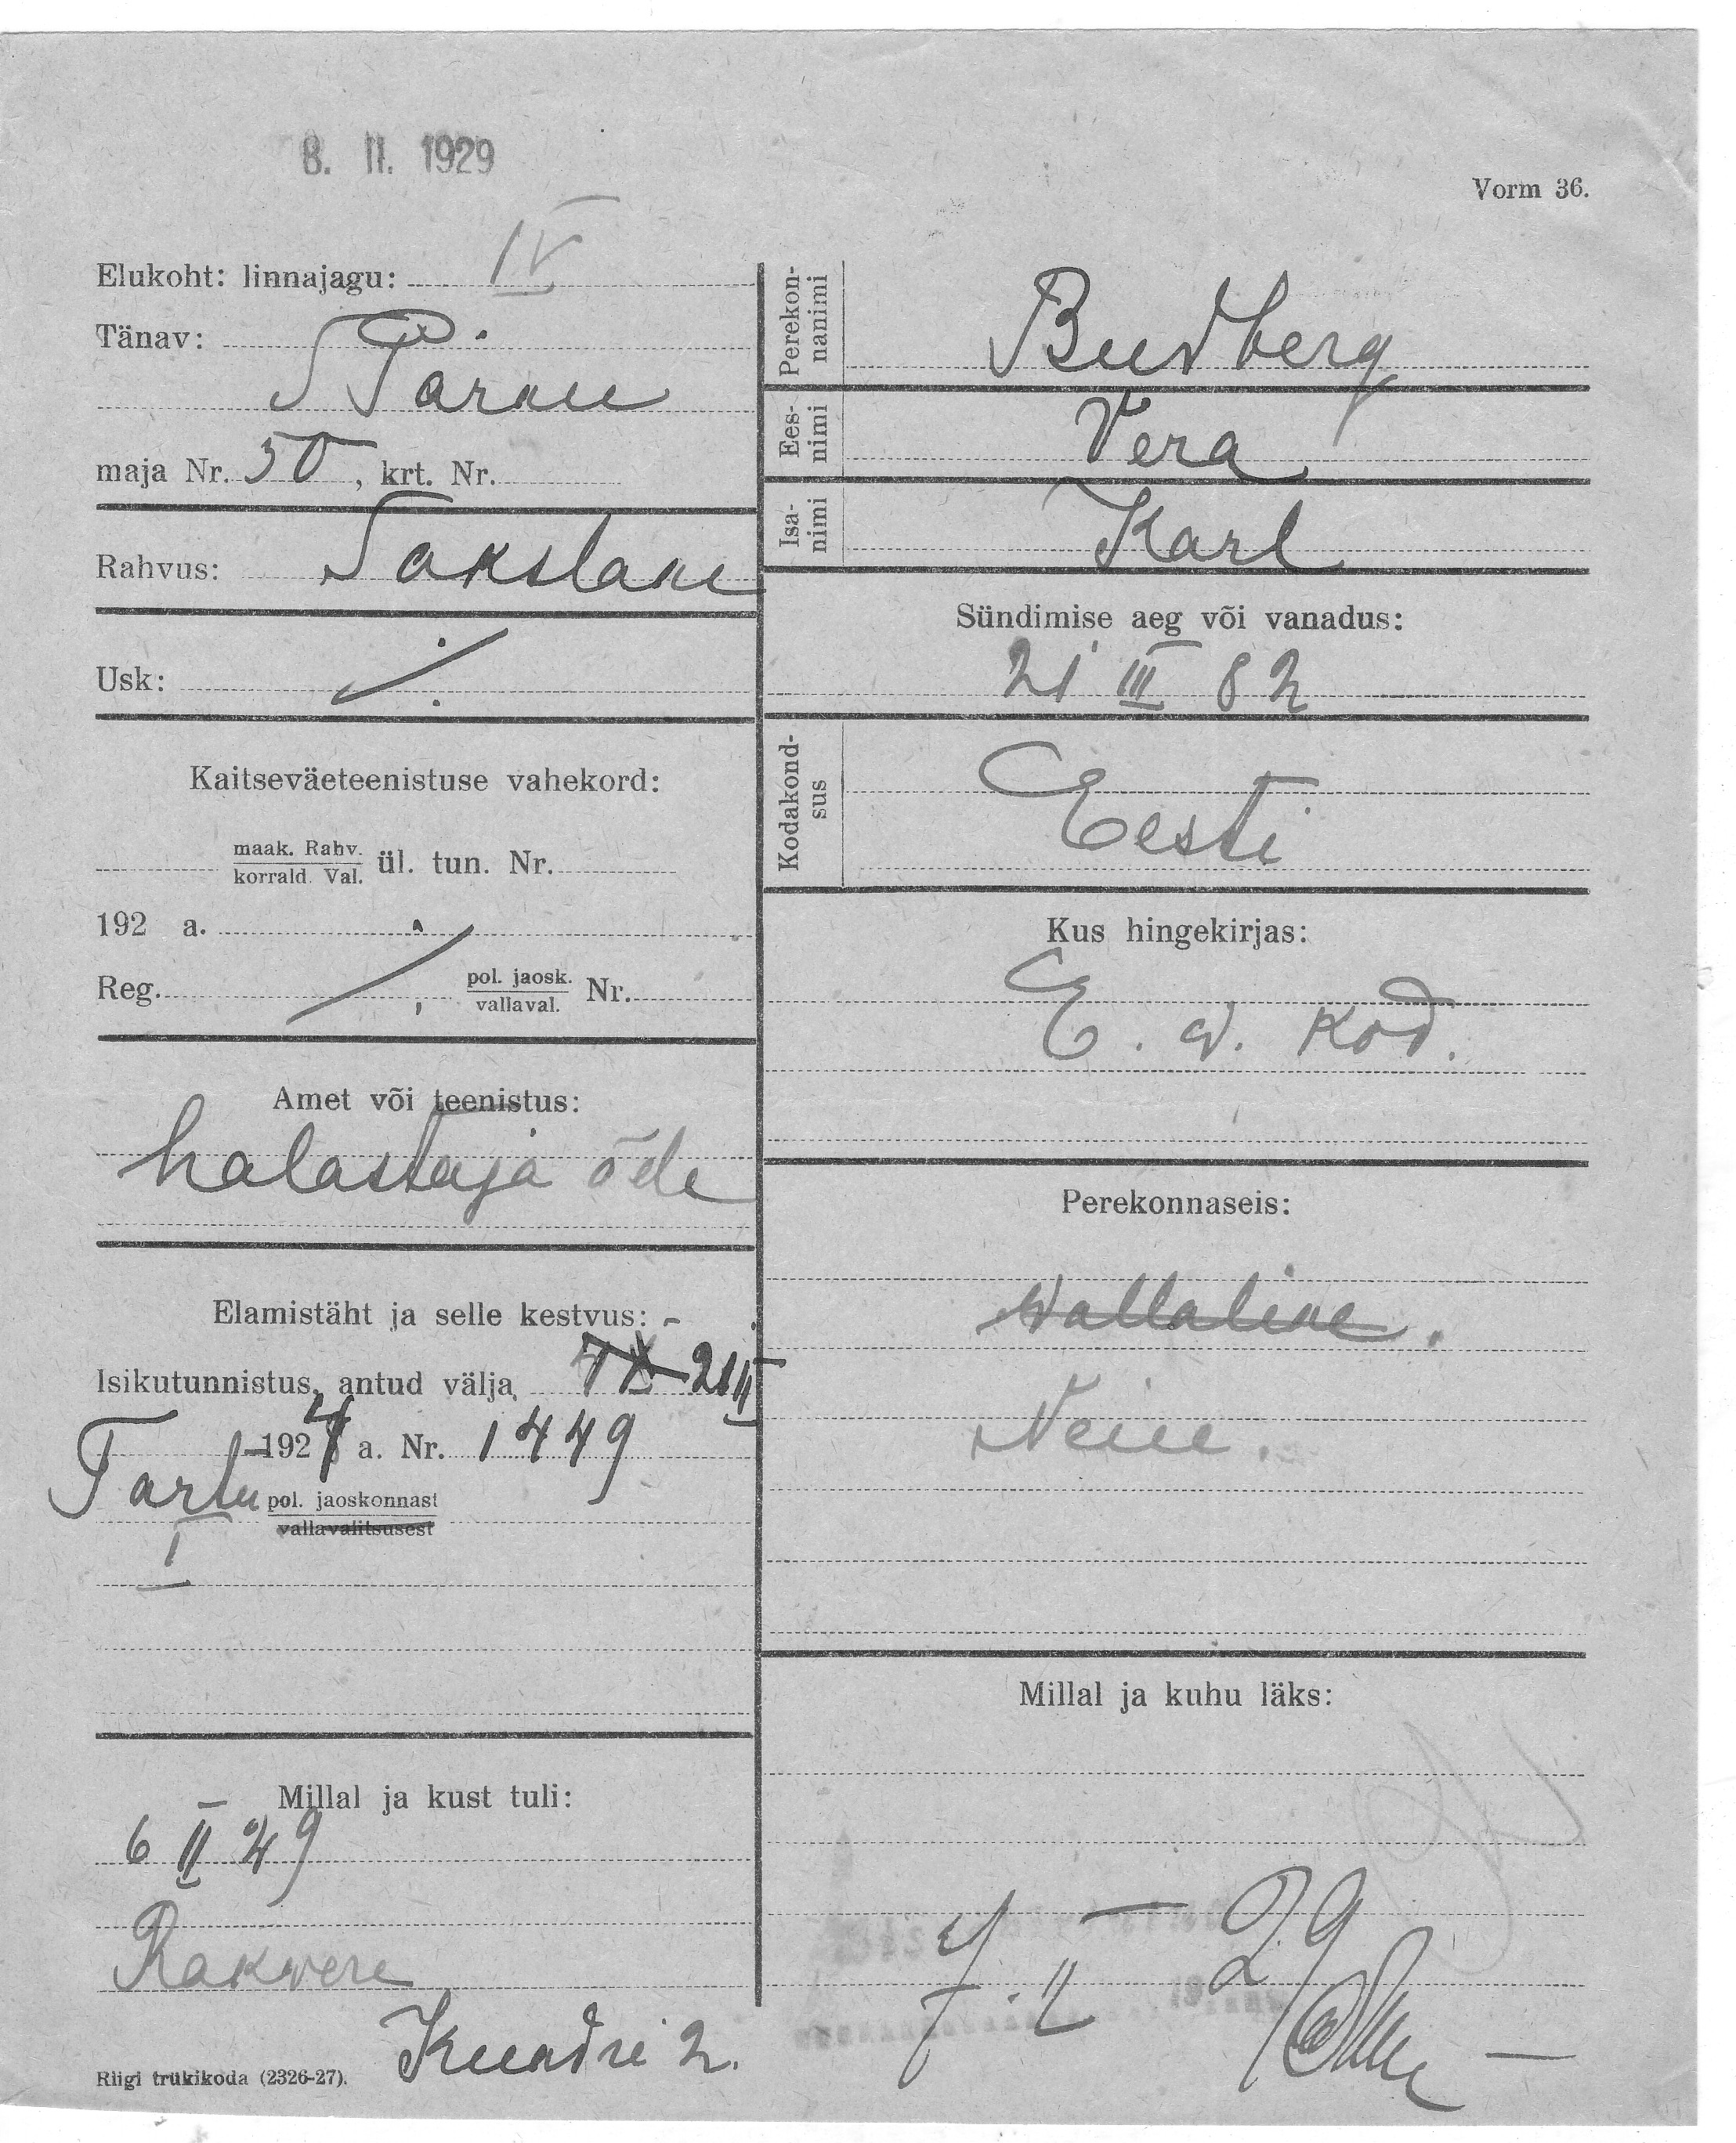 8. II. 1929
Vorm 36.
Elukoht: linnajagu: IV
Tänav:
S Pärnu
maja Nr. 50, krt. Nr.
Rahvus: Sakslane
Usk: ⁒
Kaitseväeteenistuse vahekord:
maak. Rahv.
korrald. Val. ül. tun. Nr.
192 a.
Reg. , pol. jaosk.
vallaval. Nr.
Amet või teenistus:
halastaja õde
Elamistäht ja selle kestvus: -
Isikutunnistus, antud välja 21 II
1924 a. Nr. 1449
Tartu pol. jaoskonnast
vallavalitsusest
I
Millal ja kust tuli:
6 II 29
Rakvere
Kundri 2.
Riigi trükikoda (2326-27).
Perekon-
nanimi
Budberg
Ees-
nimi
Vera
Isa-
nimi
Karl
Sündimise aeg või vanadus:
21 III 82
Kodakond-
sus
Eesti
Kus hingekirjas:
E. w. Kod.
Perekonnaseis:
Wallaline.
Neiu.
Millal ja kuhu läks:
7. II 29